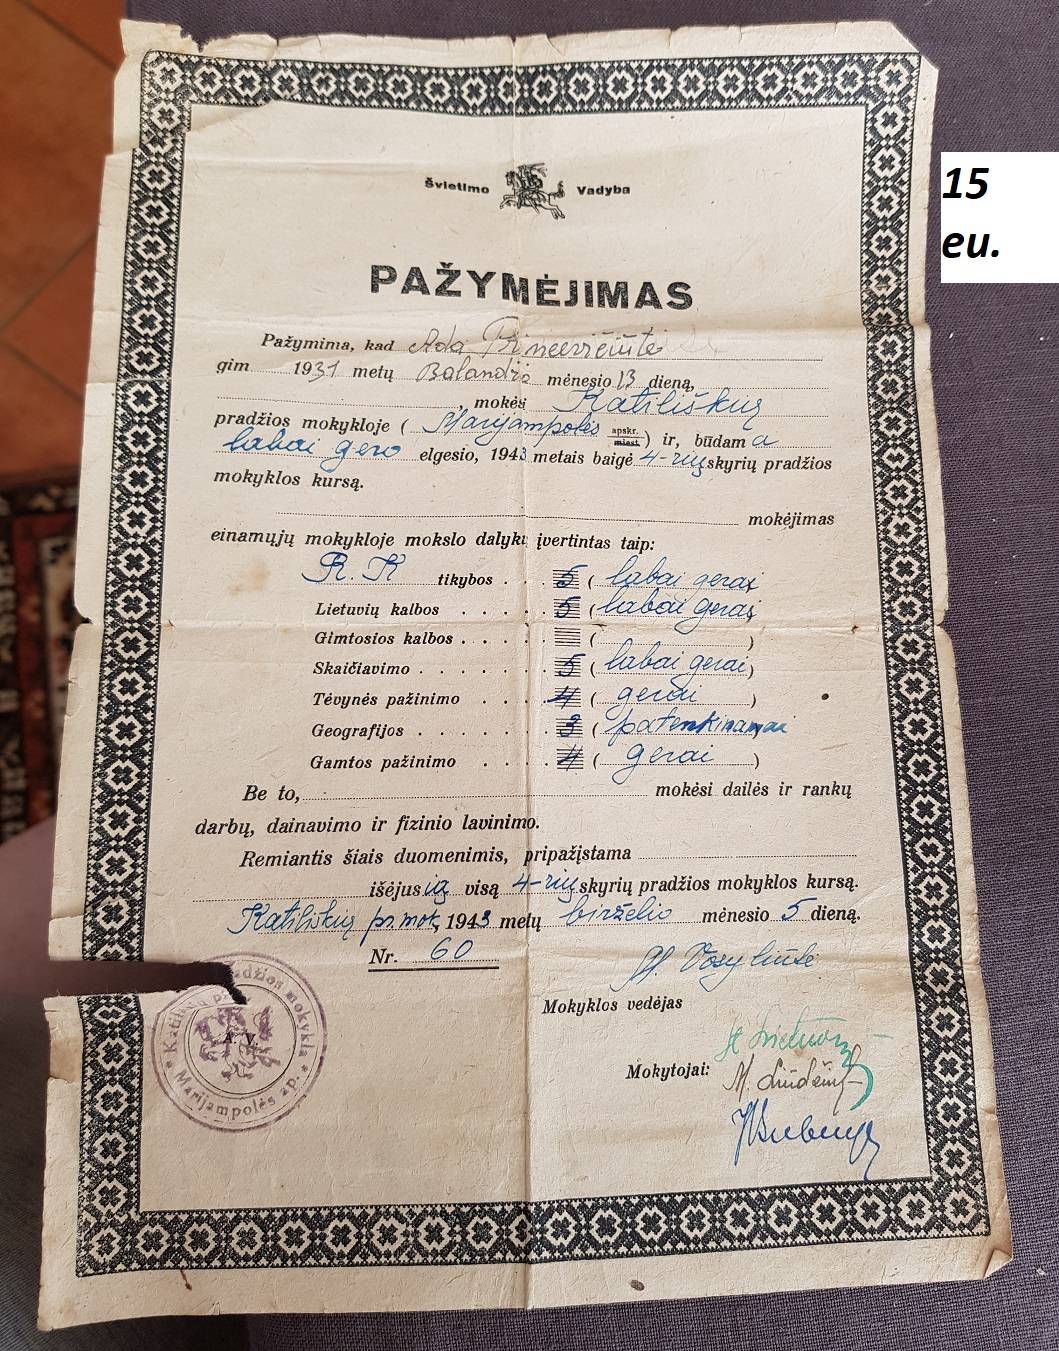 15
eu.
Švietimo Vadyba
PAŽYMĖJIMAS
Pažymima, kad Ada
gim 1931 metų Balandžio mėnesio 13 dieną,
, mokėsi Katiliškių
pradžios mokykloje ( Marijampolės apskr. miest. ) ir, būdama
labai gero elgesio, 1943 metais baigė 4-rių skyrių pradžios
mokyklos kursą.
mokėjimas
einamųjų mokykloje mokslo dalykų įvertintas taip:
R. K tikybos . . . 5 ( labai gerai
Lietuvių kalbos . . . . . 5 ( labai gerai
Gimtosios kalbos . . . . . ( )
Skaičiavimo . . . . . . . 5 ( labai gerai )
Tėvynės pažinimo . . . . 4 ( gerai )
Geografijos . . . . . . . 3 ( patenkinamai
Gamtos pažinimo . . . . 4 ( gerai )
Be to, mokėsi dailės ir rankų
darbų, dainavimo ir fizinio lavinimo.
Remiantis šiais duomenimis, pripažįstama
išėjusia visą 4-rių skyrių pradžios mokyklos kursą.
Katiliškių pr. mok, 1943 metų birželio mėnesio 5 dieną.
Nr. 60
Vosyliutė
Mokyklos vedėjas
Mokytojai:
A. V.
mokykla
Marijampolės ap.